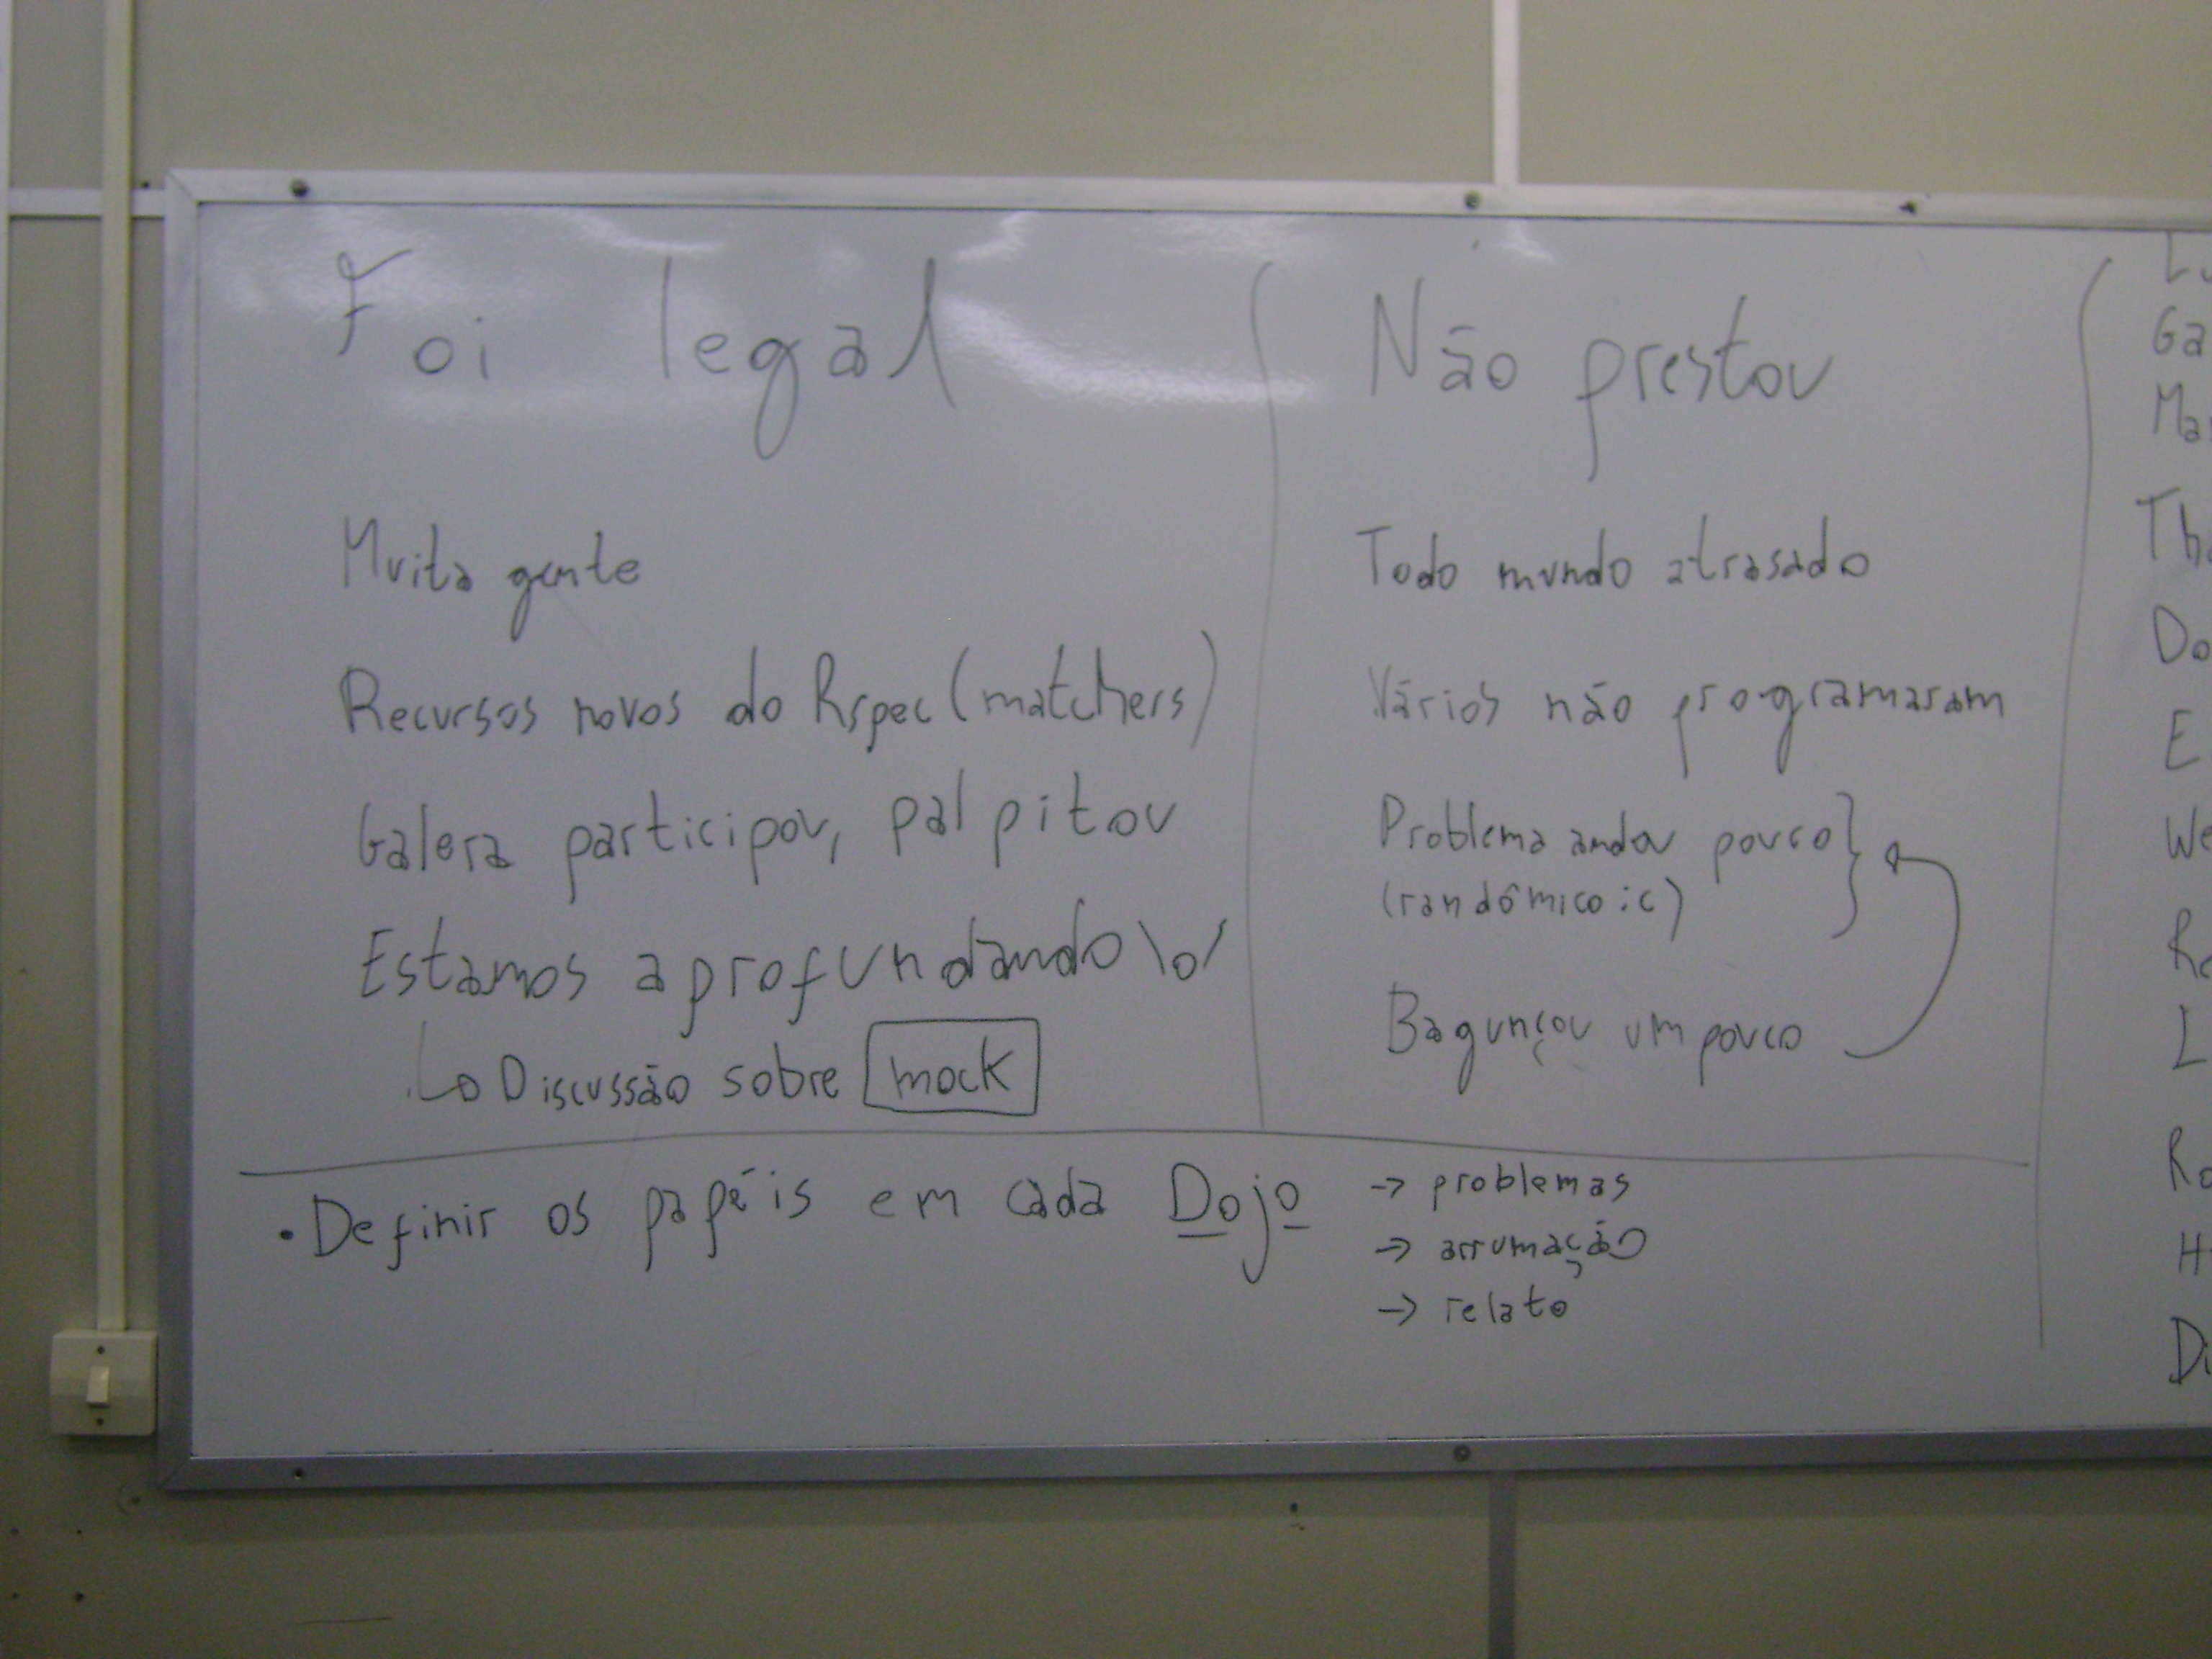 Foi legal
Muita gente
Recursos novos do Rspec (matchers)
Galera participou, palpitou
Estamos aprofundando \o/
↳ Discussão sobre mock
Não prestou
Todo mundo atrasado
Vários não programaram
Problema andou pouco
(randômico :c)
Bagunçou um pouco
• Definir os papéis em cada Dojo
→ problemas
→ arrumação
→ relato
Ga
Ma
Th
Do
E
We
Re
L
Ro
H
Di